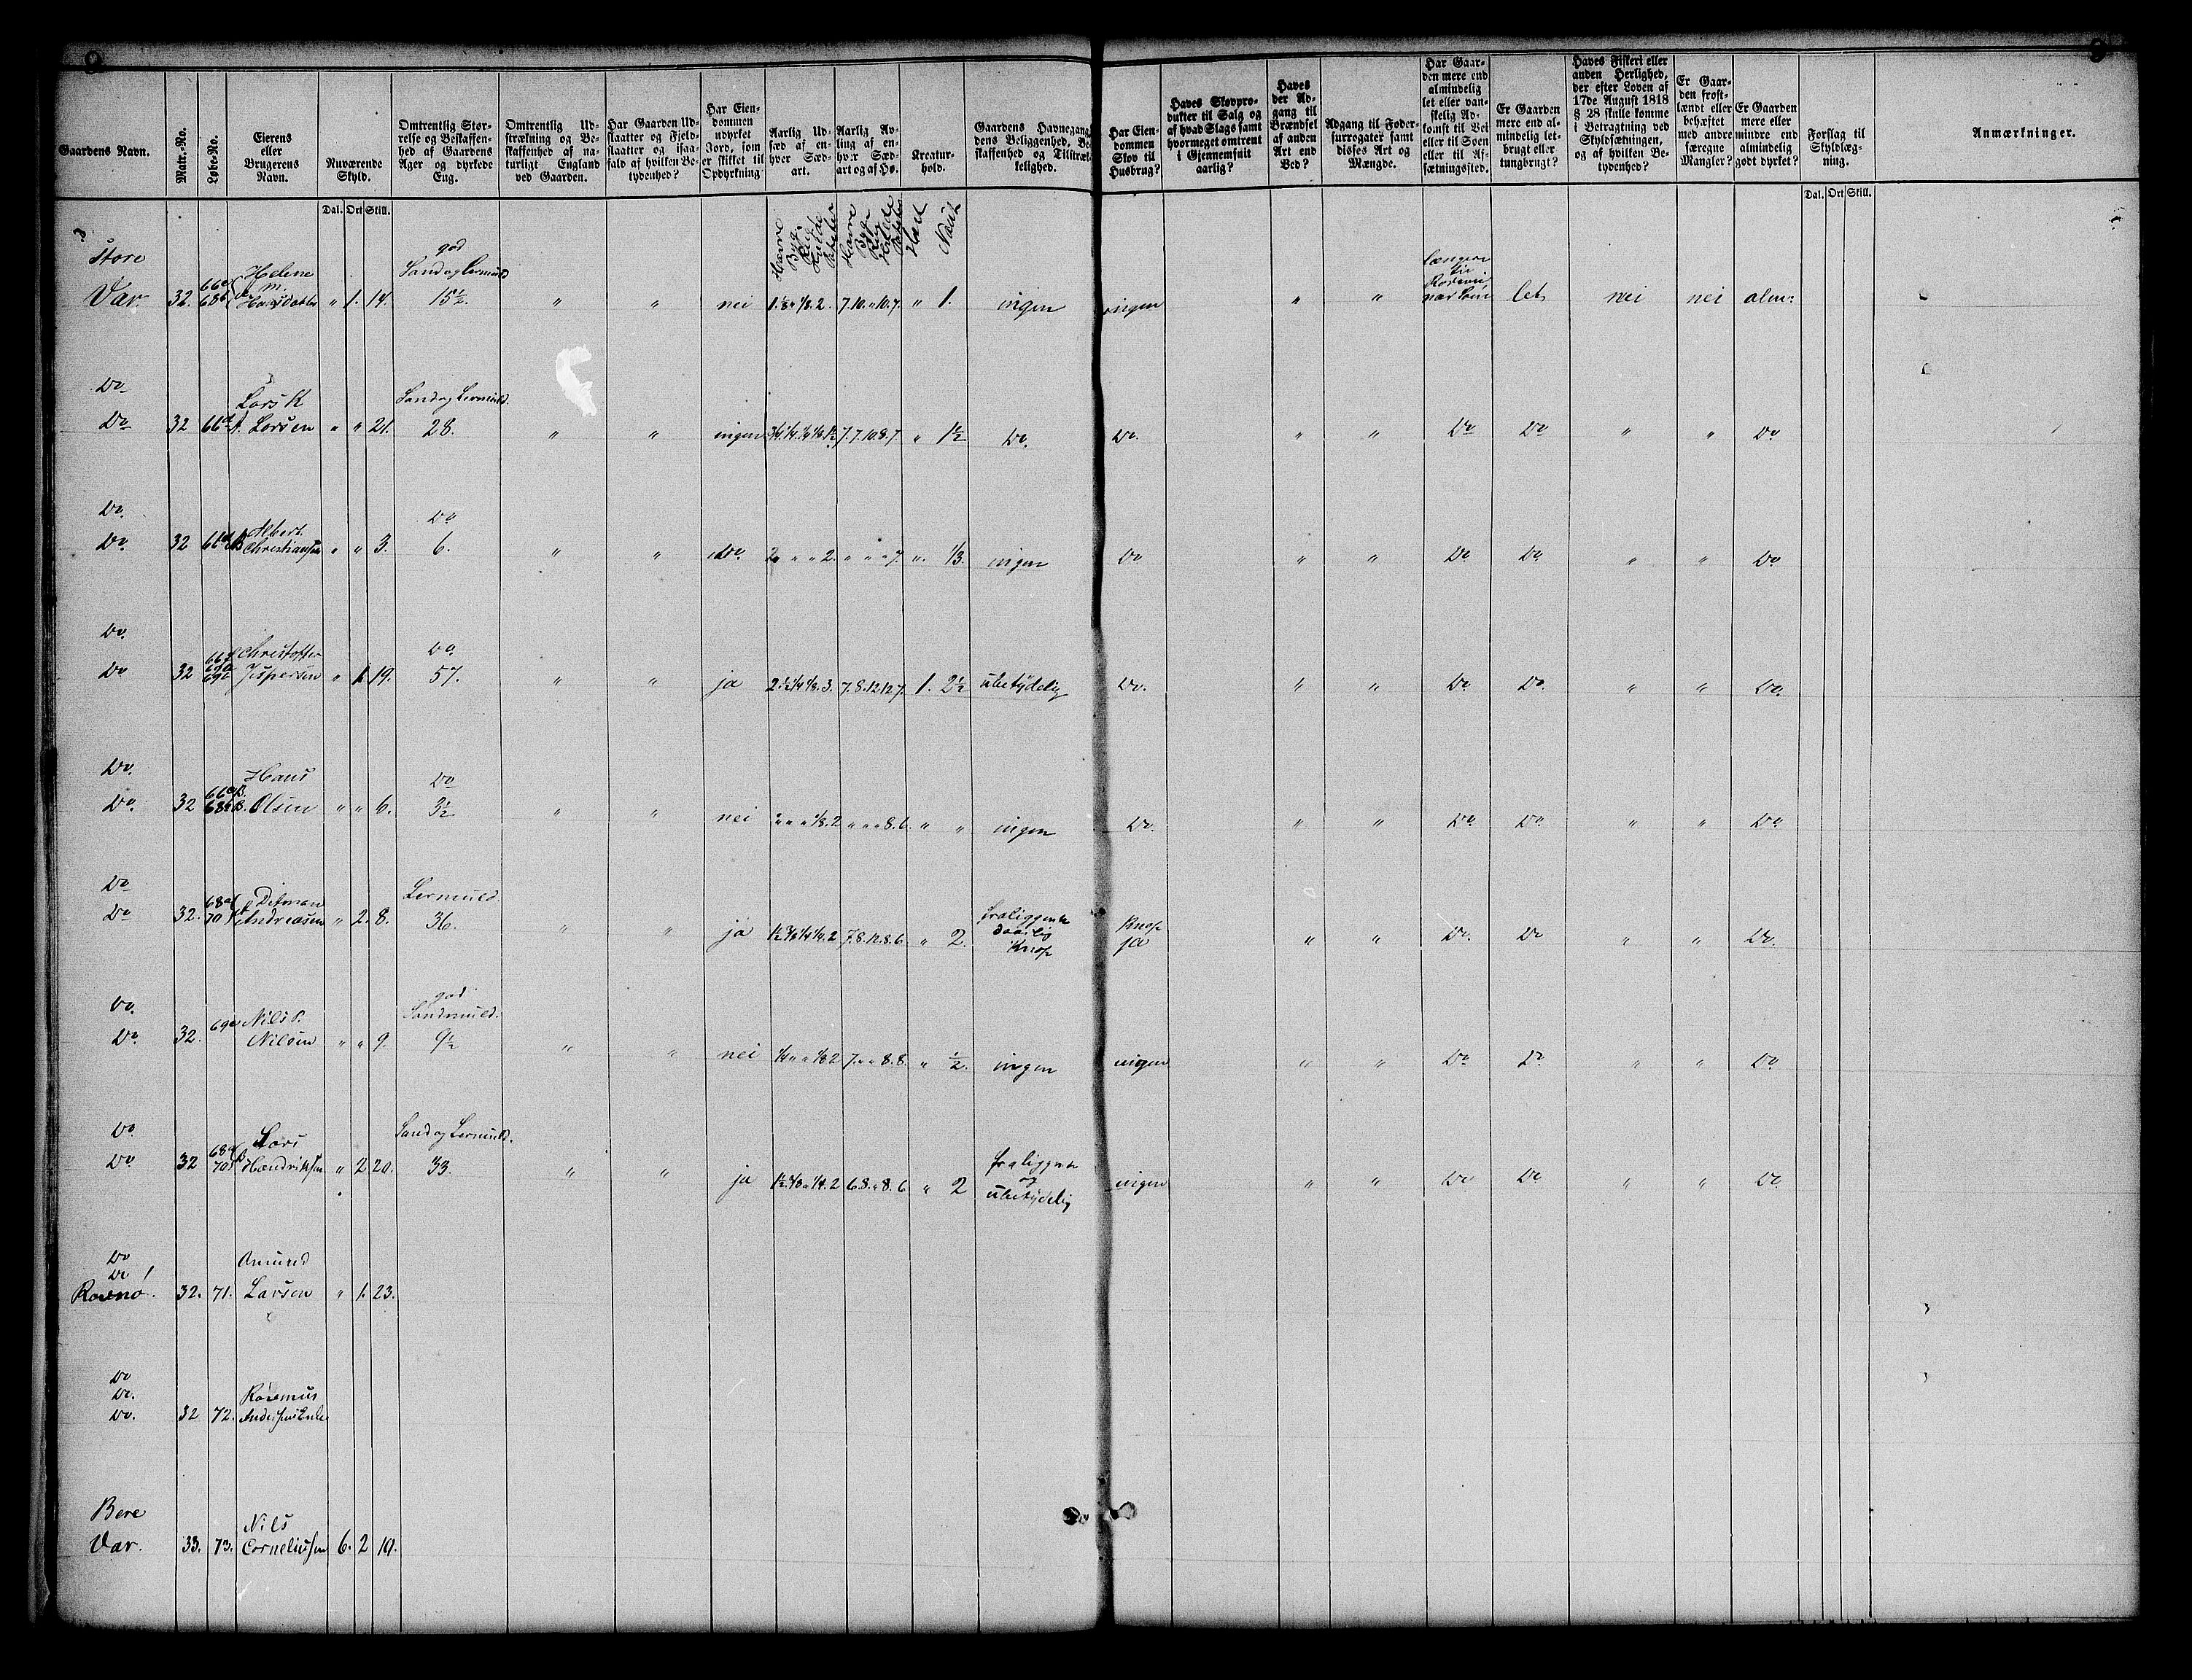 9
9
Gaardens Navn.
Matr.-No.
Løbe-No.
Eierens eller Brugerens Navn.
Nuværende Skyld.
Omtrentlig Størrelse og Beskaffenhed af Gaardens Ager og dyrkede Eng.
Omtrentlig Udstrækning og Beskaffenhed af naturligt England ved Gaarden.
Har Gaarden Udslaatter og Fjeldslaatter og isaafald af hvilken Betydenhed?
Har Eiendommen udyrket Jord, som er skikket til Opdyrkning
Aarlig Udsæd af enhver Sædart.
Aarlig Avling af enhver Sædart og af Hø.
Kreaturhold.
Gaardens Havnegang, dens Beliggenhed, Beskaffenhed og Tilstrækkelighed.
Har Eiendommen Skov til Husbrug?
Haves Skovprodukter til Salg og af hvad Slags samt hvormeget omtrent i Gjennemsnit aarlig?
Haves der Adgang til Brændsel af anden Art end Ved?
Adgang til Fodersurrogater samt disses Art og Mængde.
Har Gaarden mere end almindelig let eller vanskelig Adkomst til Vei eller til Søen eller til Afsætningssted.
Er Gaarden mere end almindelig letbrugt eller tungbrugt?
Haves Fiskeri eller anden Herlighed, der efter Loven af 17de August 1818 § 28 skulle komme i Betragtning ved Skyldsætningen, og af hvilken Betydenhed?
Er Gaarden frostlændt eller behæftet med andre særegne Mangler?
Er Gaarden mere eller mindre end almindelig godt dyrket?
Forslag til Skyldlægning.
Anmærkninger.
Dal. Ort Skill.
Dal. Ort Skill.
Havre Byg. Rug Hvede Poteter
Havre Byg Rug Hvede Poteter
Hest Naut
Store Var. 32. Helene M. Hansdatter " 1. 14. god Sand og Lermuld 15½. " " nei " 1. ingen ingen " " let nei nei alm:
Do Do 32 66 Lars K Larsen " " 21. Sand og Lermuld. 28. " " ingen 7.7.10.8.7. " 1½ Do. Do. " " Do Do " " Do
Do. Do. 32 Albert Christiansen " " 3. Do 6. " " Do. 2 " " " 2. " " " " 7. ". 1/3. ingen Do " " Do Do. " " Do
Do. Do 32 Christoffer Jespersen " 1. 19. Do. 57. " " ja 7.8.12.12.7. 1. 2½ ubetydelig Do. " " Do Do. " " Do.
Do. Do. 32 Hans Olsen " " 6. Do 3½ " " nei " " " 8.6. " " ingen Do. " " Do. Do. " " Do.
Do Do 32. Ditman Andreasen " 2. 8. Lermuld. 36. " " ja 7.8.12.8.6. " 2. fraliggende daarlig Knap Knap ja " " Do. Do " " Do.
Do. Do. 32. 69 Nils P. Nilsen " " 9. god Sandmuld. 9½ " " nei 7. " " 8.8. " ½. ingen ingen " " Do Do. " " Do.
Do. Do. 32 Lars Hendriksen " 2 20. Sand og Lermuld. 33. " " ja 6.8. " 8.6 " 2 fraliggende og ubetydelig ingen " " Do Do " " Do.
Do Do 32. 71. Amund Larsen " 1. 23.
Do Do. Do. 32 72. Rasmus Andersens Enke
Bere Var. 33. 73. Nils Corneliusen 6. 2 19.